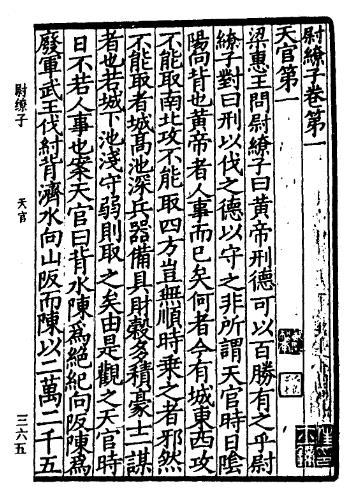 尉繚子卷第一
天官第一
梁惠王問尉繚子曰黃帝刑德可以百勝有之乎尉
繚子對曰刑以伐之德以守之非所謂天官時日陰
陽向背也黃帝者人事而已矣何者今有城東西攻
不能取南北攻不能取四方豈無順時乘之者邪然
不能取者城高池深兵器備具財穀多積豪士一謀
者也若城下池淺守弱則取之矣由是觀之天官時
日不若人事也案天官曰背水陳爲絕紀向阪陳爲
廢軍武王伐紂背濟水向山阪而陳以二萬二千五
尉缭子
天官
三六五